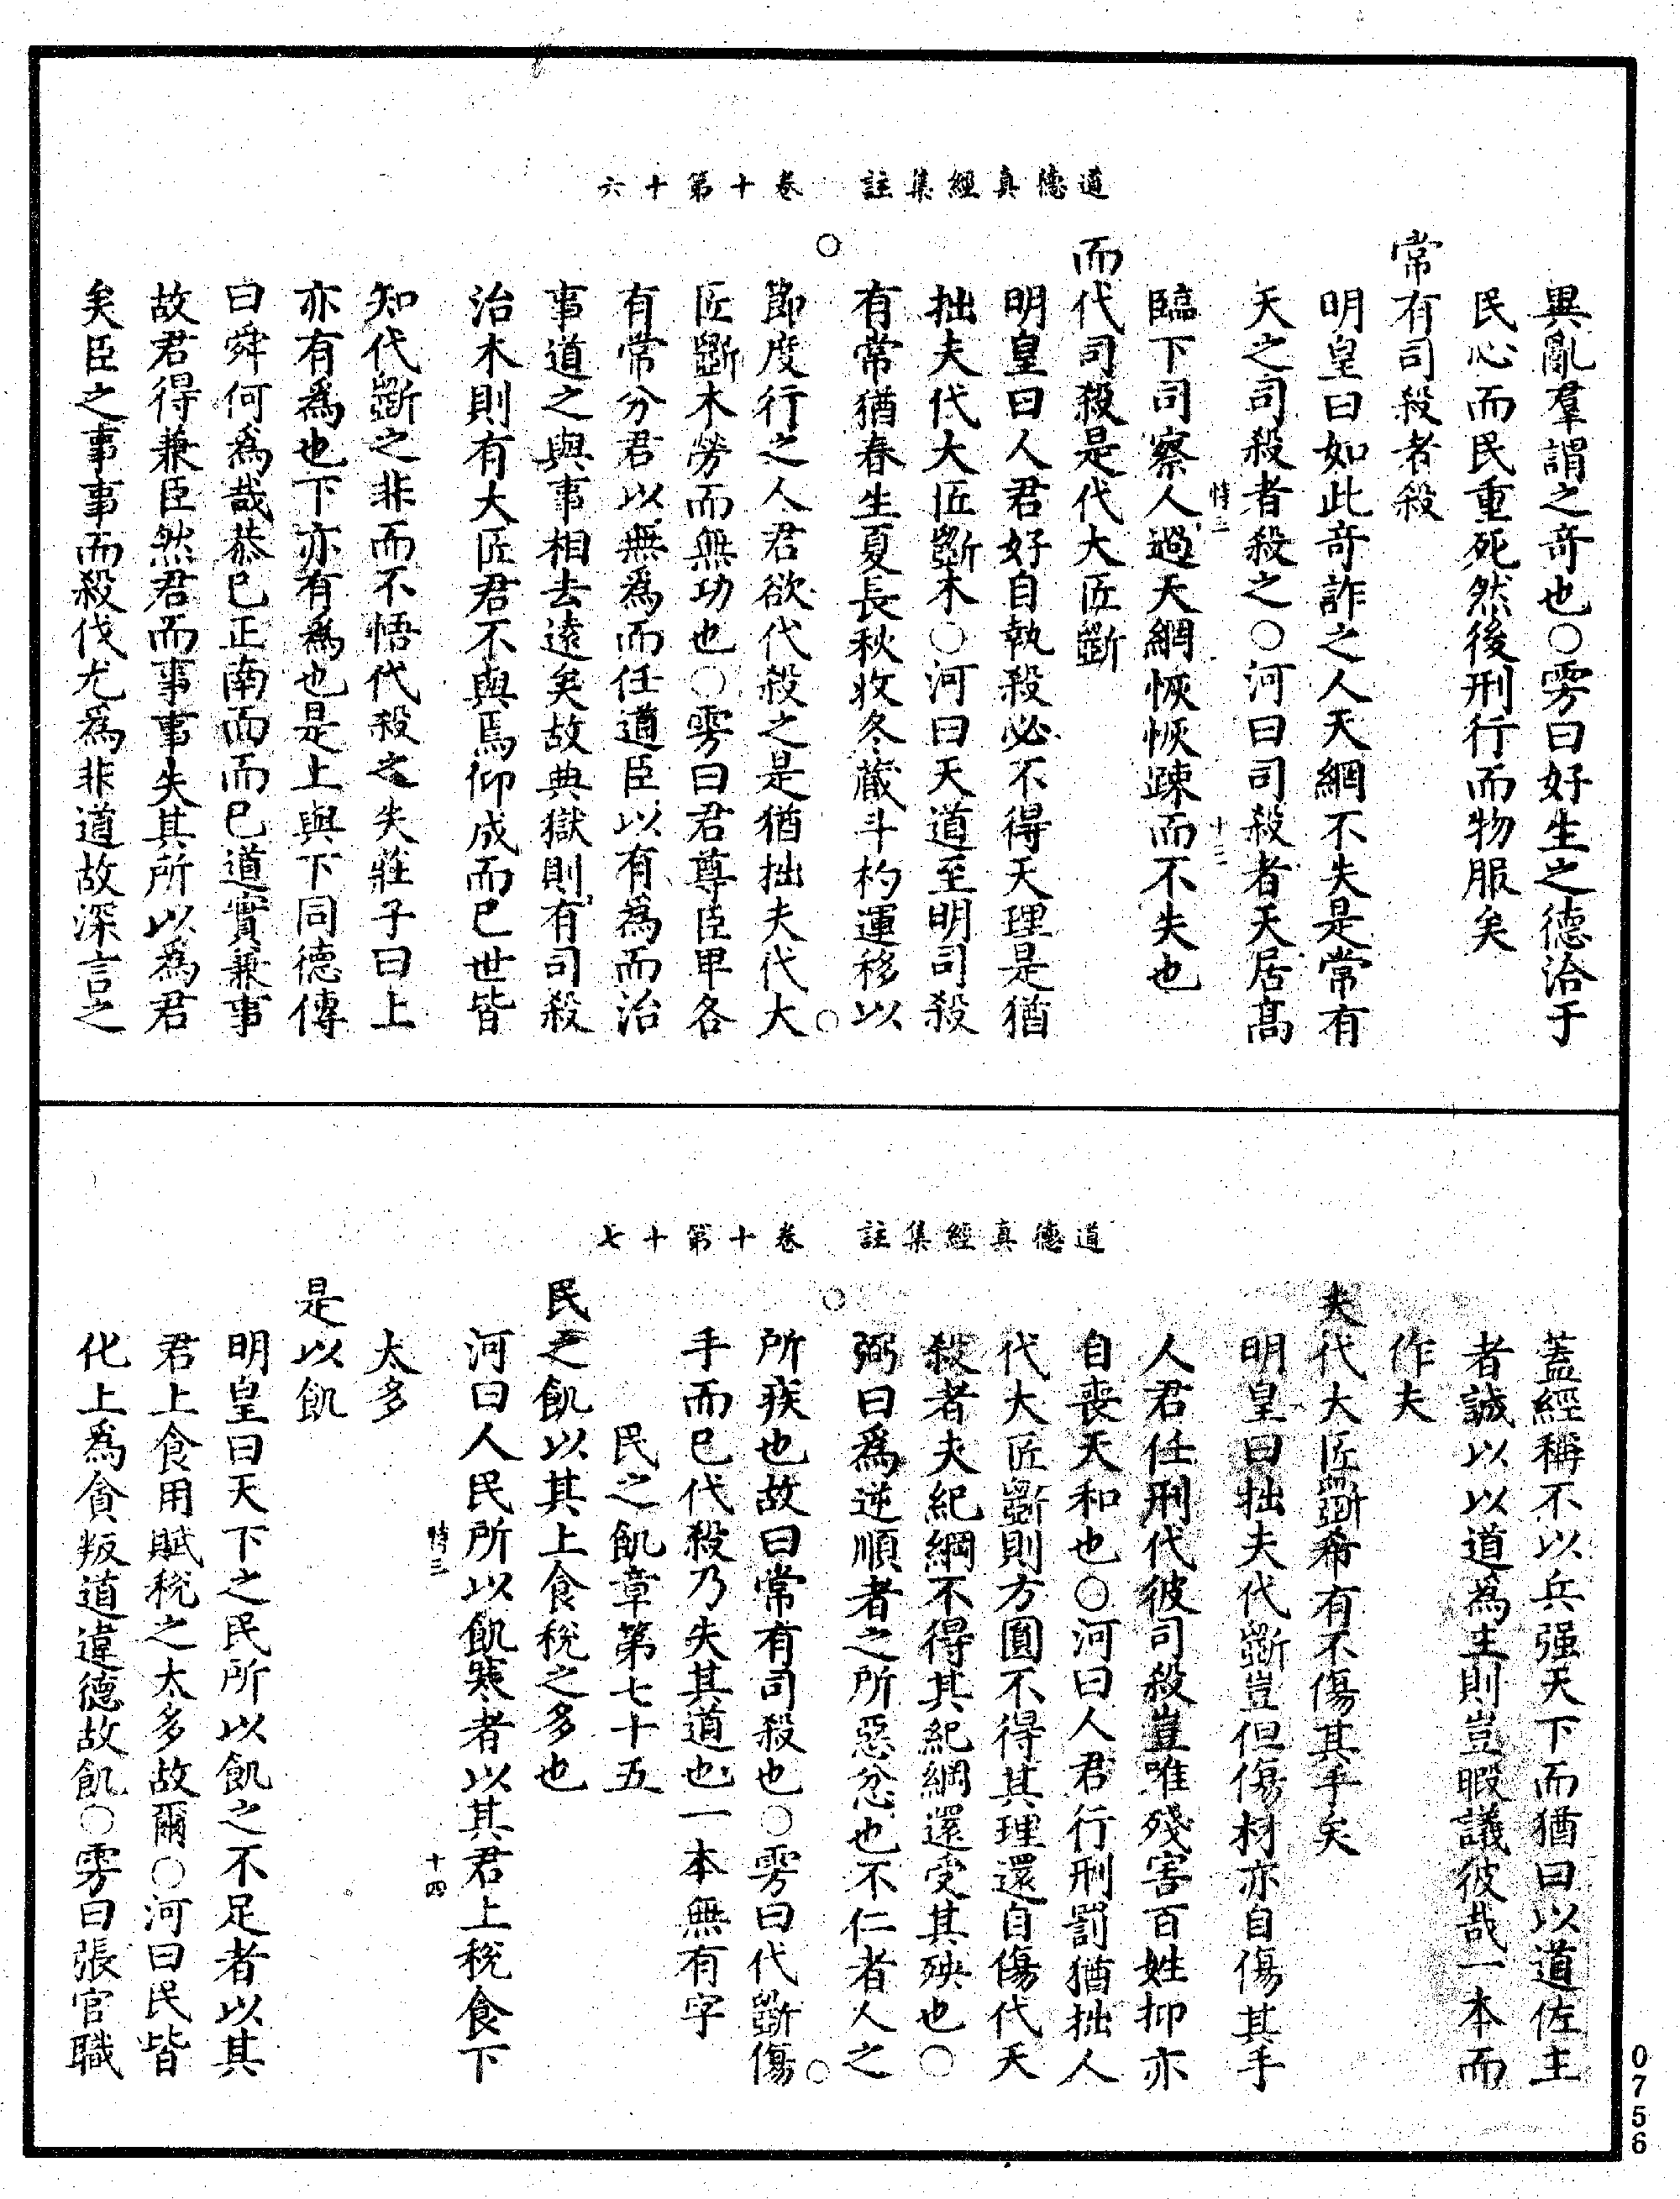 道德真經集註　卷十第十六
異亂羣謂之竒也○雱曰好生之德洽于
民心而民重死然後刑行而物服矣
常有司殺者殺
明皇曰如此竒詐之人天網不失是常有
天之司殺者殺之○河曰司殺者天居髙
特三　十三
臨下司察人過天網恢恢疎而不失也
而代司殺是代大匠斵
明皇曰人君好自執殺必不得天理是猶
拙夫代大匠斵木○河曰天道至明司殺
有常猶春生夏長秋收冬藏斗杓運移以
節度行之人君欲代殺之是猶拙夫代大
匠斵木勞而無功也○雱曰君尊臣卑各
有常分君以無爲而任道臣以有爲而治
事道之與事相去逺矣故典獄則有司殺
治木則有大匠君不與焉仰成而已世皆
知代斵之非而不悟代殺之失莊子曰上
亦有爲也下亦有爲也是上與下同德傳
曰舜何爲哉恭已正南面而已道實兼事
故君得兼臣然君而事事失其所以爲君
矣臣之事事而殺伐尤爲非道故深言之
道德真經集註　卷十第十七
蓋經稱不以兵强天下而猶曰以道佐主
者誠以以道爲主則豈暇議彼哉一本而
作夫
夫代大匠斵希有不傷其手矣
明皇曰拙夫代斵豈但傷材亦自傷其手
人君任刑代彼司殺豈唯殘害百姓抑亦
自喪天和也○河曰人君行刑罰猶拙人
代大匠斵則方圓不得其理還自傷代天
殺者夫紀綱不得其紀綱還受其殃也○
弼曰爲逆順者之所惡忿也不仁者人之
所疾也故曰常有司殺也○雱曰代斵傷
手而已代殺乃失其道也一本無有字
民之飢章第七十五
民之飢以其上食稅之多也
河曰人民所以飢寒者以其君上稅食下
特三　十四
太多
是以飢
明皇曰天下之民所以飢之不足者以其
君上食用賦稅之太多故爾○河曰民皆
化上爲貪叛道違德故飢○雱曰張官職
0756